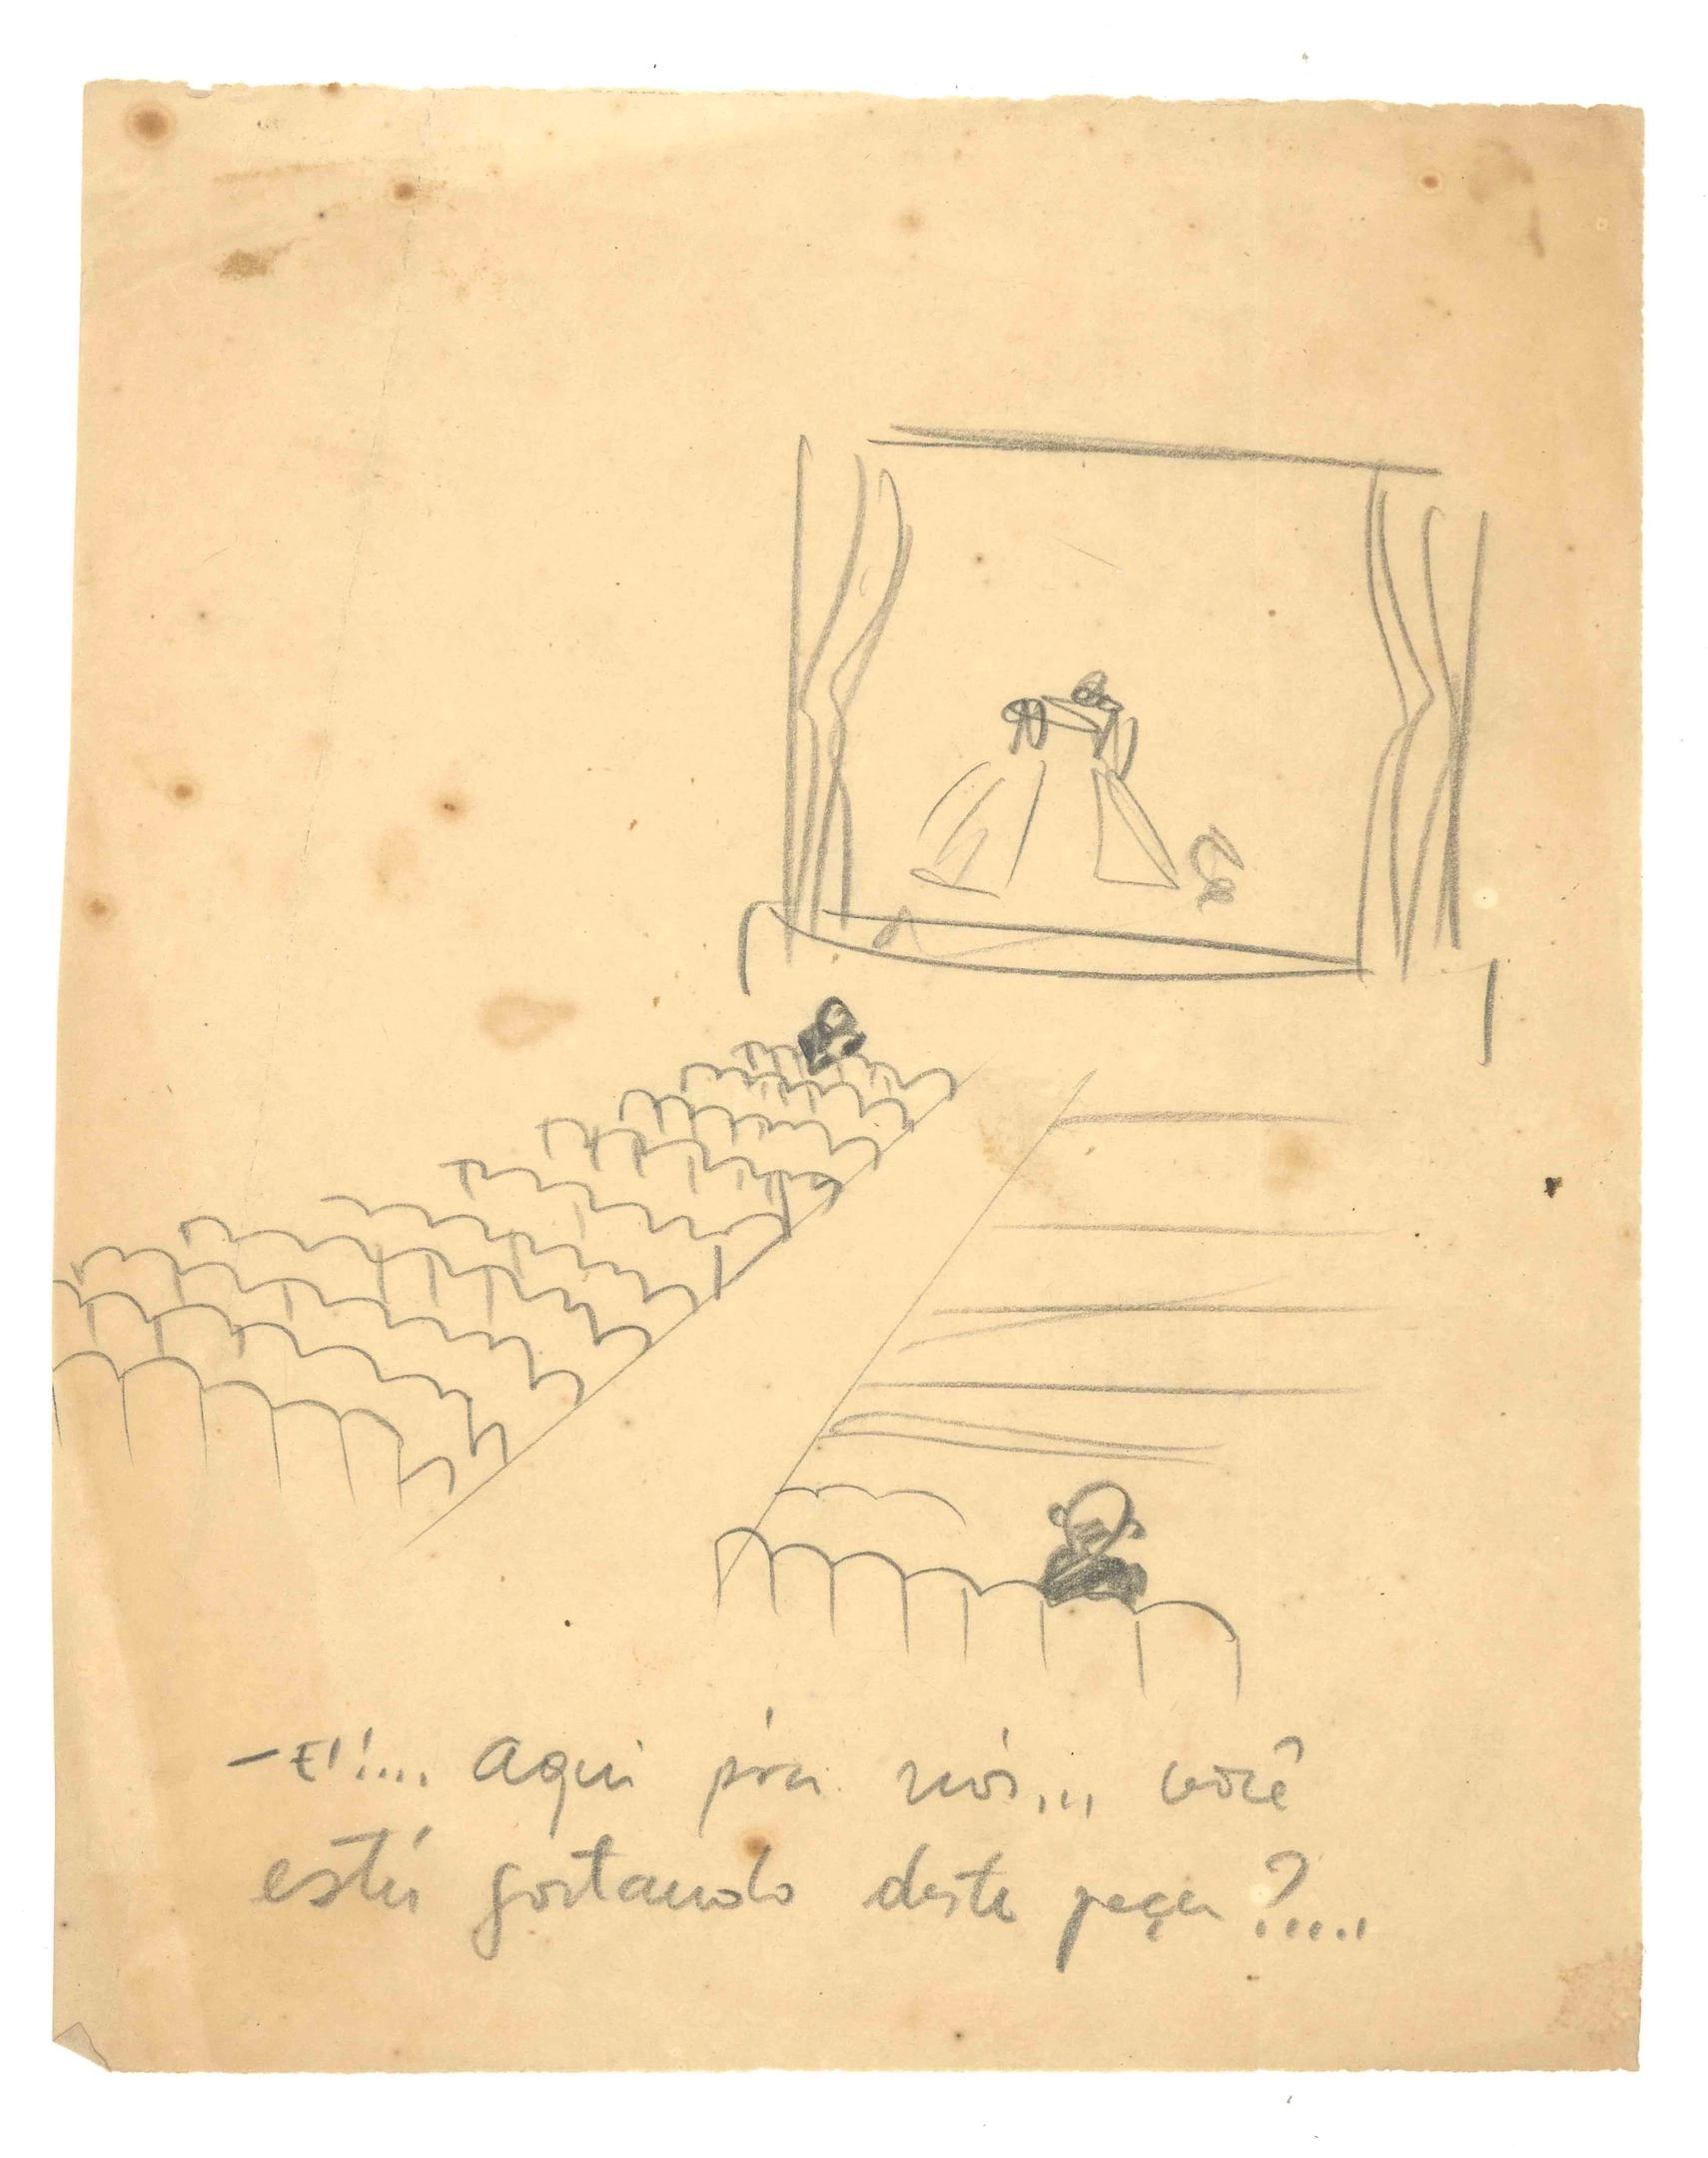 — Ei!... Aqui pra nós... você
está gostando desta peça?.....